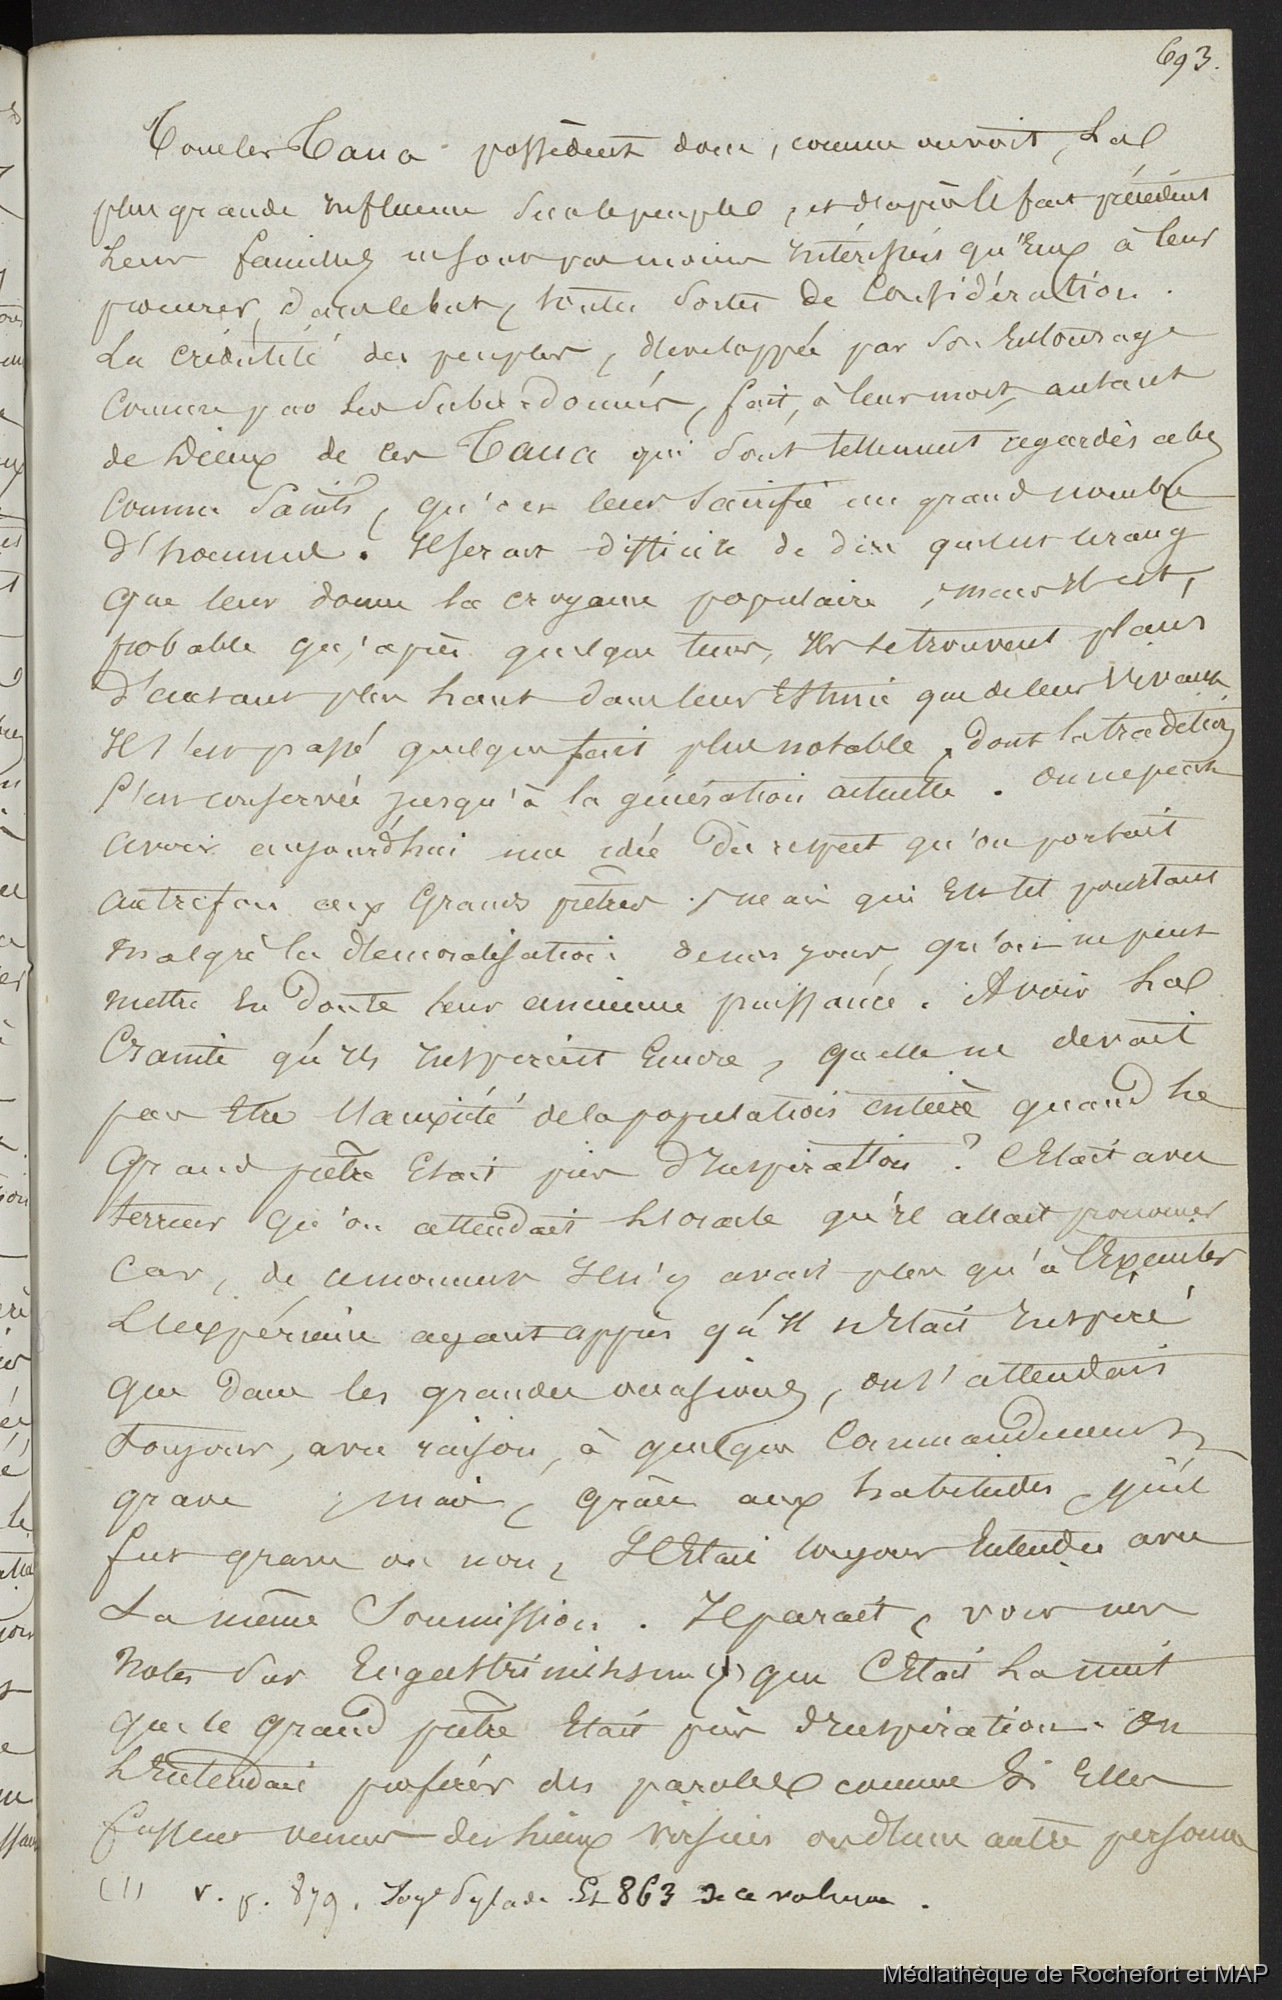 693.
Tous les Taua possèdent donc, comme on voit, La
plus grande Influence Sur le peuple, et d'après le fait précédent
Leur famille ne sont pas moins Intéressés qu'Eux à leur
procurer, dans le but, toutes Sortes de Considération.
La crédulité des peuples, développée par Son Entourage
Comme par les Subordonnés, fait, à leur mort, autant
de Dieux de ces Taua qui Sont tellement regardés
Comme Saints, qu'on leur Sacrifie un grand nombre
d'hommes. Il serait difficile de dire quel est le rang
Que leur donne la croyance populaire, mais Il est,
probable qu'après quelque tems, Ils se trouvent placés
d'autant plus haut dans leur Estime que de leur Vivant
Il s'est passé quelque fait plus notable, dont la tradition
S'est conservée jusqu'à la génération actuelle. On ne peut
avoir aujourd'hui une idée du respect qu'on portait
autrefois aux Grands prêtres, mais qui Est tel pourtant
malgré la démoralisation de nos jours, qu'on ne peut
mettre En Doute leur ancienne puissance. A voir La
Crainte qu'ils Inspirent Encore, quelle ne devait
pas Etre l'anxiété de la population entière quand Le
Grand prêtre Etait pris d'Inspiration? C'Etait avec
terreur Qu'on attendait L'oracle qu'il allait prononcer
Car, de ce moment Il n'y avait plus qu'à l'Exécuter
L'Expérience ayant appris qu'Il n'Etait Inspiré
Que Dans les grandes occasions, on s'attendait
toujours, avec raison, à quelque Commandement
grave; mais, grâce aux habitudes, qu'il
fut grave ou non, Il Etait toujours Entendu avec
La même Soumission. Il parait, voir nos
Notes Sur Engastrimisme (1) que C'Etait La nuit
que le Grand prêtre Etait pris d'Inspiration. On
L'Entendait proférer des paroles comme Si Elles
fussent venues des lieux voisins ou d'une autre personne
(1) v. p. 879. Voy. Pylade. Et 863 de ce volume.
Médiathèque de Rochefort et MAP